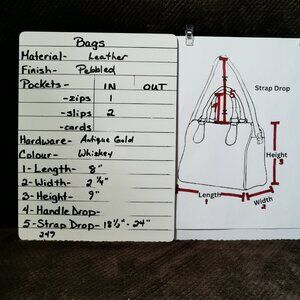 Bags
Material- Leather
Finish- Pebbled
Pockets- IN OUT
-zips 1
-slips 2
-cards
Hardware- Antique Gold
Colour- Whiskey
1- Length- 8"
2- Width- 2 1/4"
3- Height- 9"
4- Handle Drop-
5- Strap Drop- 18 1/2" - 24"
249
Strap Drop
5
4
Height
3
Length
1
Width
2